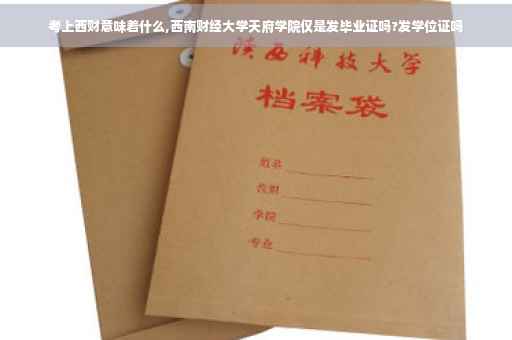 考上西财意味着什么,西南财经大学天府学院仅是发毕业证吗?发学位证吗
陕西科技大学
档案袋
姓名
学院
专业